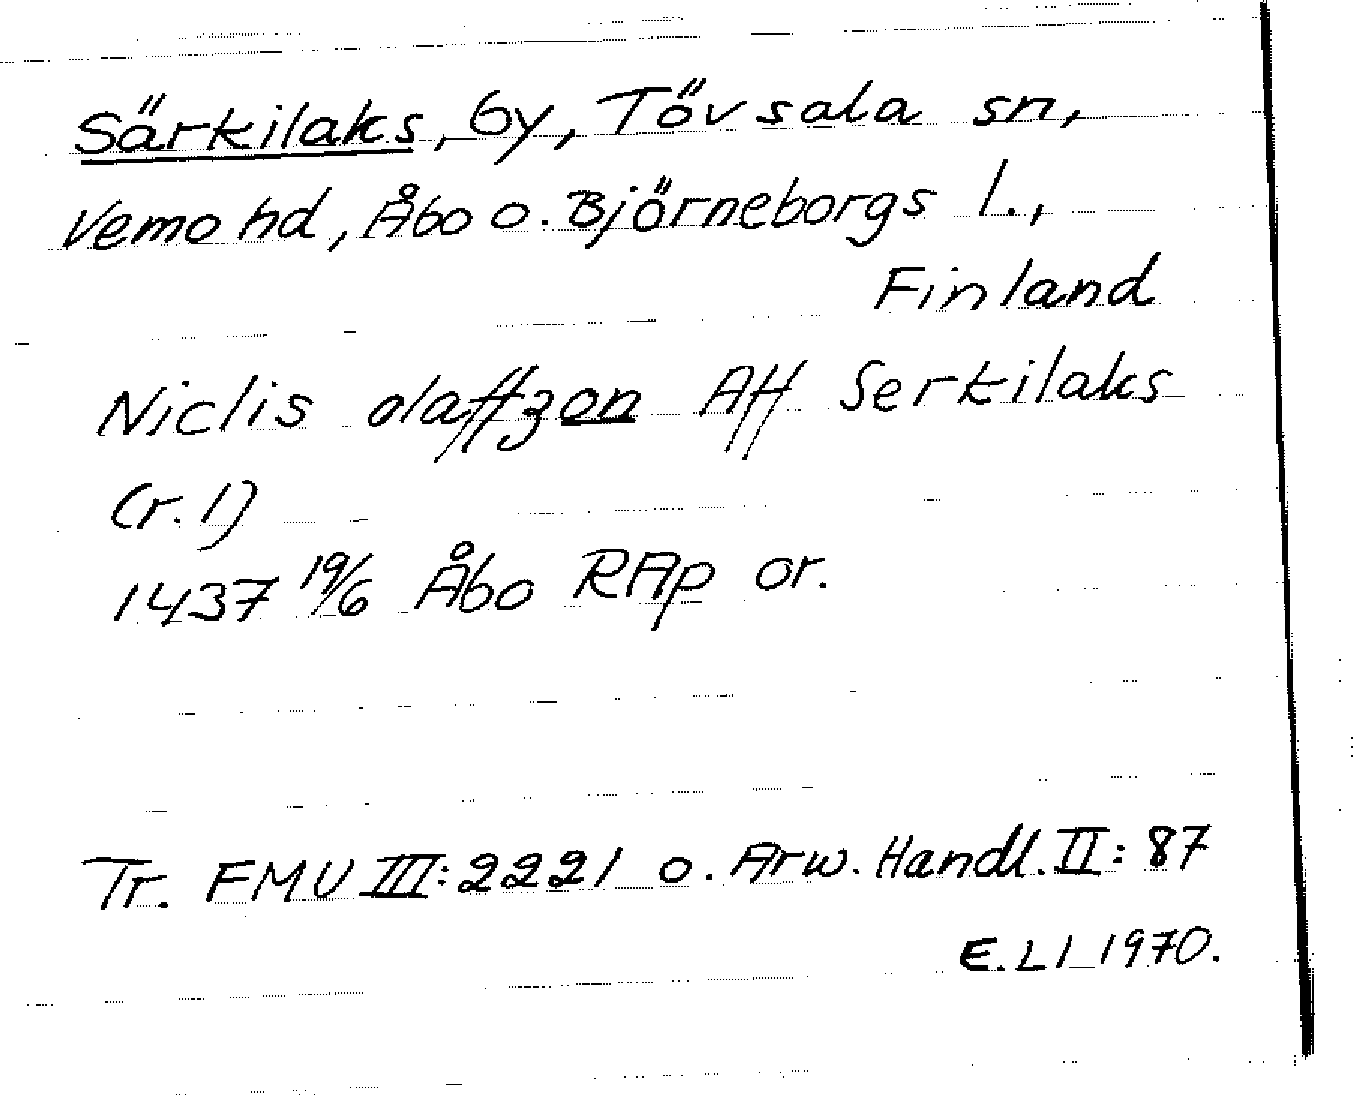 Särkilaks, by, Tövsala sn,
Vemo hd, Åbo o. Björneborgs l.,
Finland
Niclis olaffzon Aff Serkilaks
(r. 1)
1437 19/6 Åbo RAp or.
Tr. FMU III: 2221 o. Arw. Handl. II: 87
E. L 1970.